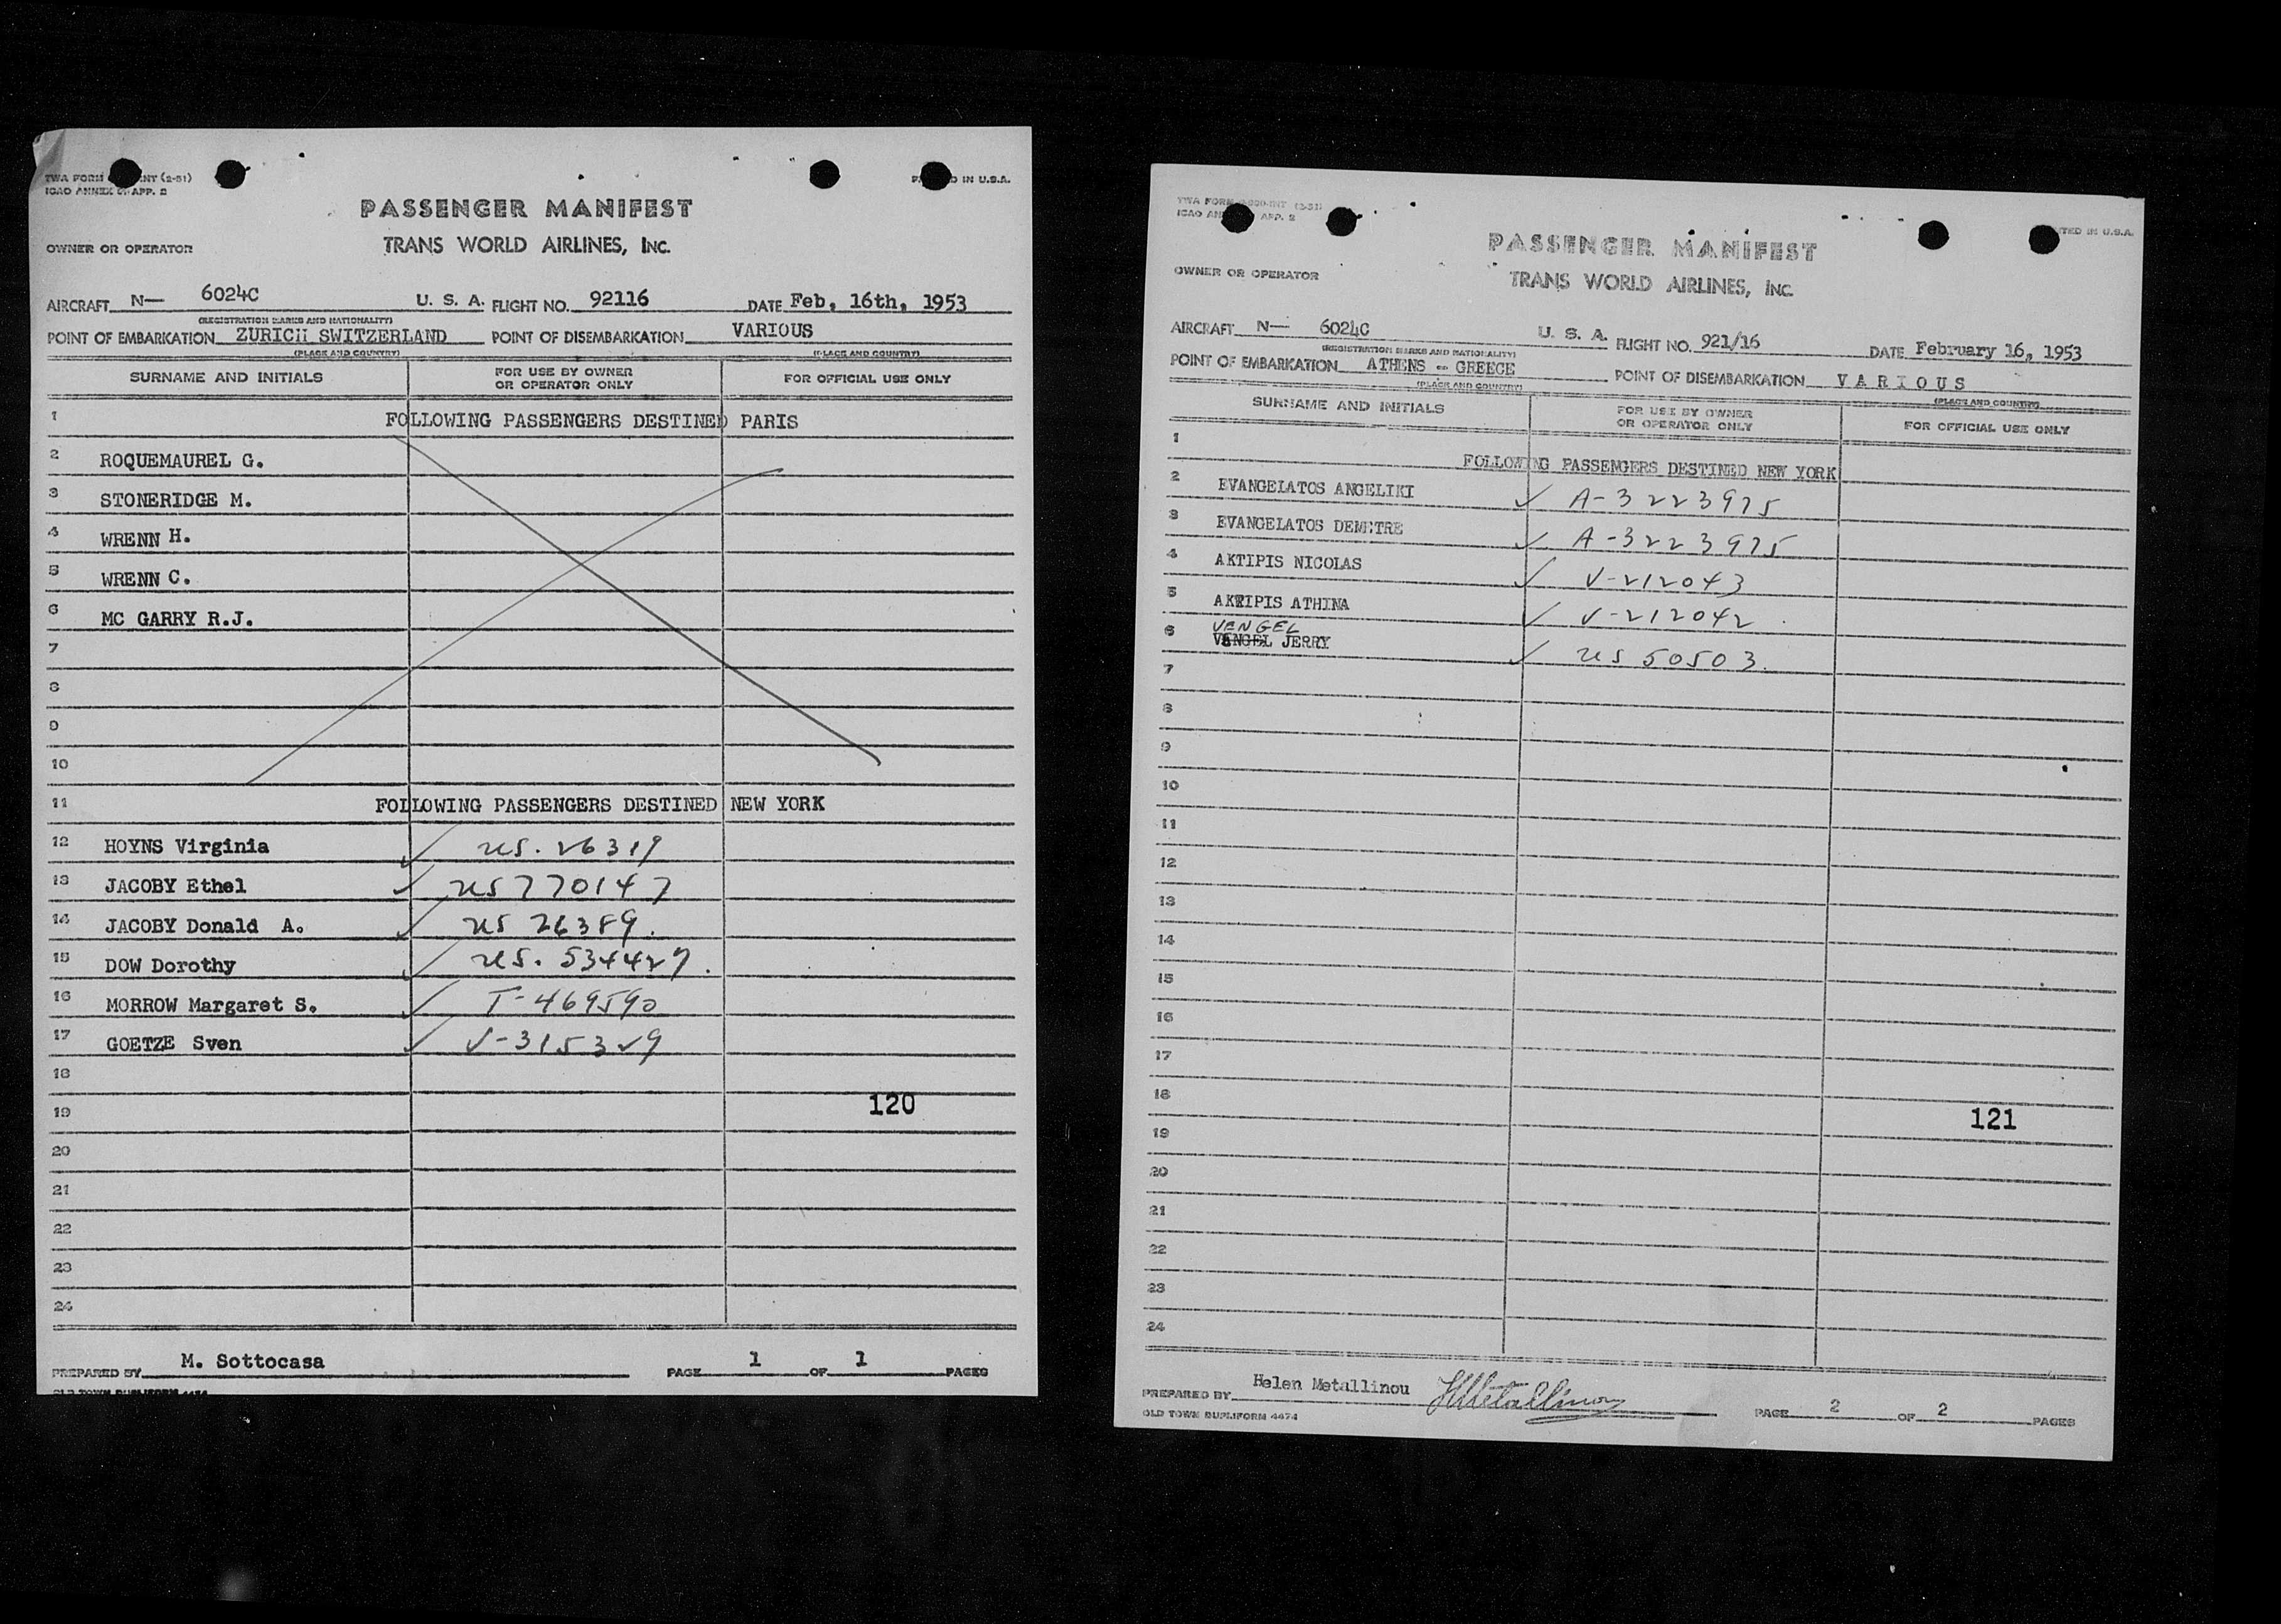 TWA FORM NT (2-51)
ICAO ANNEX 9, APP. 2
D IN U.S.A.
PASSENGER MANIFEST
OWNER OR OPERATOR TRANS WORLD AIRLINES, INC.
AIRCRAFT N— 6024C U. S. A. FLIGHT NO. 92116 DATE Feb, 16th, 1953
(REGISTRATION MARKS AND NATIONALITY)
POINT OF EMBARKATION ZURICH SWITZERLAND POINT OF DISEMBARKATION VARIOUS
(PLACE AND COUNTRY) (PLACE AND COUNTRY)
SURNAME AND INITIALS FOR USE BY OWNER OR OPERATOR ONLY FOR OFFICIAL USE ONLY
1 FOLLOWING PASSENGERS DESTINED PARIS
2 ROQUEMAUREL G.
3 STONERIDGE M.
4 WRENN H.
5 WRENN C.
6 MC GARRY R.J.
7
8
9
10
11 FOLLOWING PASSENGERS DESTINED NEW YORK
12 HOYNS Virginia ✓ US. 26319
13 JACOBY Ethel ✓ US 770147
14 JACOBY Donald A. ✓ US 26389.
15 DOW Dorothy ✓ US. 534427.
16 MORROW Margaret S. ✓ T-469590
17 GOETZE Sven ✓ V-315329
18
19 120
20
21
22
23
24
PREPARED BY M. Sottocasa PAGE 1 OF 1 PAGES
OLD TOWN DUPLIFORM 4474
TWA FORM INT (2-51)
ICAO APP. 2
TED IN U.S.A.
PASSENGER MANIFEST
OWNER OR OPERATOR TRANS WORLD AIRLINES, INC.
AIRCRAFT N— 6024C U. S. A. FLIGHT NO. 921/16 DATE February 16, 1953
(REGISTRATION MARKS AND NATIONALITY)
POINT OF EMBARKATION ATHENS - GREECE POINT OF DISEMBARKATION VARIOUS
(PLACE AND COUNTRY) (PLACE AND COUNTRY)
SURNAME AND INITIALS FOR USE BY OWNER OR OPERATOR ONLY FOR OFFICIAL USE ONLY
1 FOLLOWING PASSENGERS DESTINED NEW YORK
2 EVANGELATOS ANGELIKI ✓ A-3223975
3 EVANGELATOS DEMETRE ✓ A-3223975
4 AKTIPIS NICOLAS ✓ V-212043
5 AKTIPIS ATHINA ✓ V-212042.
VENGEL
6 VANGEL JERRY ✓ US 50503.
7
8
9
10
11
12
13
14
15
16
17
18
121
19
20
21
22
23
24
PREPARED BY Helen Metallinou HMetallinou PAGE 2 OF 2 PAGES
OLD TOWN DUPLIFORM 4474